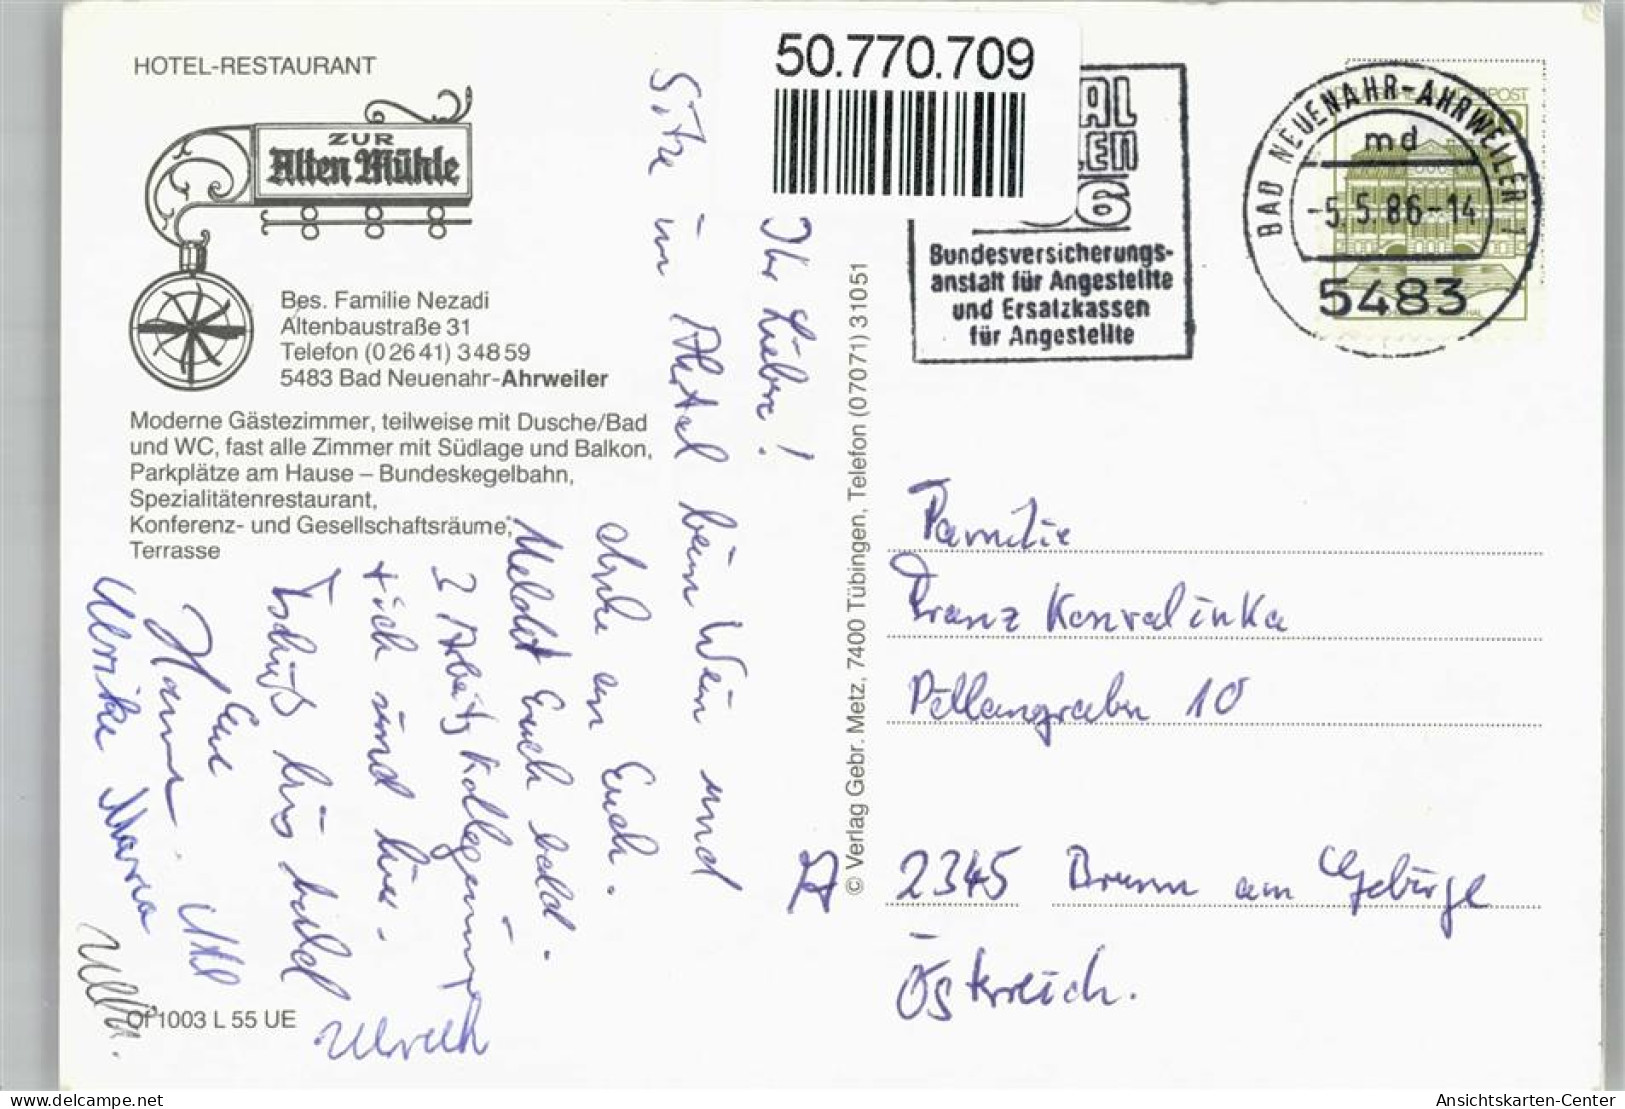 HOTEL-RESTAURANT
ZUR
Alten Mühle
Bes. Familie Nezadi
Altenbaustraße 31
Telefon (0 26 41) 3 48 59
5483 Bad Neuenahr-Ahrweiler
Moderne Gästezimmer, teilweise mit Dusche/Bad
und WC, fast alle Zimmer mit Südlage und Balkon,
Parkplätze am Hause – Bundeskegelbahn,
Spezialitätenrestaurant,
Konferenz- und Gesellschaftsräume,
Terrasse
Ihr Lieben!
Sitze im Ahrtal beim Wein und
denke an Euch.
Meldet Euch bald.
3 Arbeitskolleginnen
+ ich sind hier.
Tschüß bis bald
Eue
Ulrike Maria
Ulrich
Of 1003 L 55 UE
© Verlag Gebr. Metz, 7400 Tübingen, Telefon (07071) 31051
50.770.709
AL
LEN
86
Bundesversicherungs-
anstalt für Angestellte
und Ersatzkassen
für Angestellte
BAD NEUENAHR-AHRWEILER 1
md
-5.5.86-14
5483
Familie
Franz Konvalinka
Pöllangraben 10
A 2345 Brunn am Gebirge
Österreich.
Ansichtskarten-Center